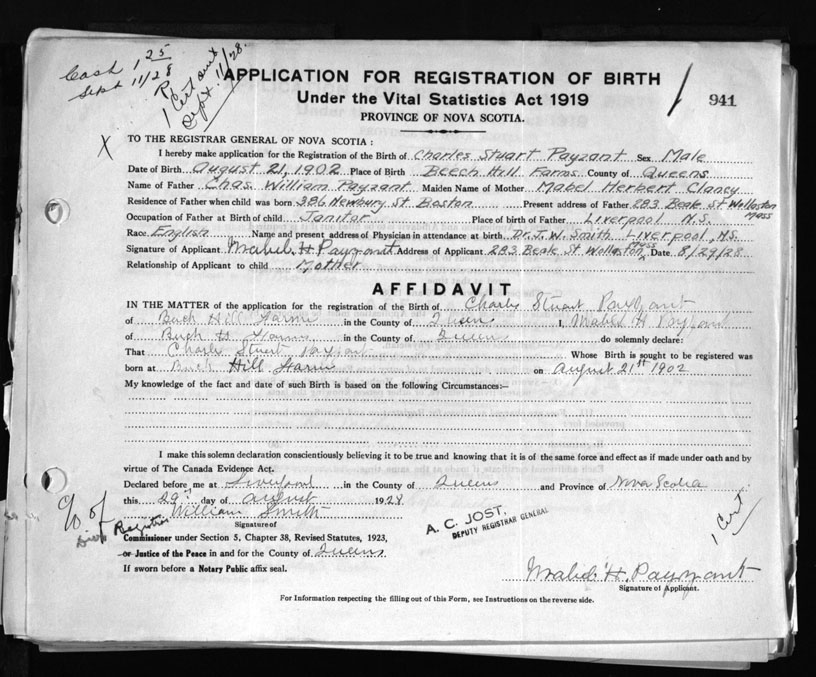 Cash 1 25
Sept 11/28
1 Cert sent
Sept. 11/28.
APPLICATION FOR REGISTRATION OF BIRTH
Under the Vital Statistics Act 1919
PROVINCE OF NOVA SCOTIA.
941
X TO THE REGISTRAR GENERAL OF NOVA SCOTIA:
I hereby make application for the Registration of the Birth of Charles Stuart Payzant Sex Male
Date of Birth August 21, 1902 Place of Birth Beech Hill Farms County of Queens
Name of Father Chas. William Payzant Maiden Name of Mother Mabel Herbert Clancy
Residence of Father when child was born 386 Newbury St. Boston Present address of Father 283 Beale St Wollaston Mass
Occupation of Father at Birth of child Janitor Place of birth of Father Liverpool N.S.
Race English Name and present address of Physician in attendance at birth Dr. J. W. Smith Liverpool, N.S.
Signature of Applicant Mabel H Payzant Address of Applicant 283 Beale St Wollaston Mass Date 8/29/28
Relationship of Applicant to child Mother
AFFIDAVIT
IN THE MATTER of the application for the registration of the Birth of Charles Stuart Payzant
of Hill Farms in the County of Queens I, Mabel H Payzant
of in the County of Queens do solemnly declare:
That Charles Stuart Payzant Whose Birth is sought to be registered was
born at Hill Farm on August 21st 1902
My knowledge of the fact and date of such Birth is based on the following Circumstances:—
I make this solemn declaration conscientiously believing it to be true and knowing that it is of the same force and effect as if made under oath and by
virtue of The Canada Evidence Act.
Declared before me at Liverpool in the County of Queens and Province of Nova Scotia
this 29th day of August 1928
William Smith
Signature of
c/o of
Commissioner under Section 5, Chapter 38, Revised Statutes, 1923,
or Justice of the Peace in and for the County of Queens
If sworn before a Notary Public affix seal.
A. C. JOST,
DEPUTY REGISTRAR GENERAL
1 Cert
Mabel H. Payzant
Signature of Applicant.
For Information respecting the filling out of this Form, see Instructions on the reverse side.